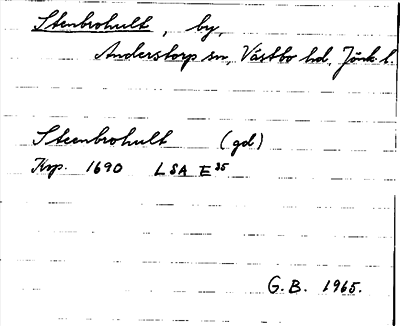 Stenbrohult, by,
Anderstorp sn, Västbo hd, Jönk. l.
Steenbrohult (gd)
Krp. 1690 LSA E 35
G.B. 1965.